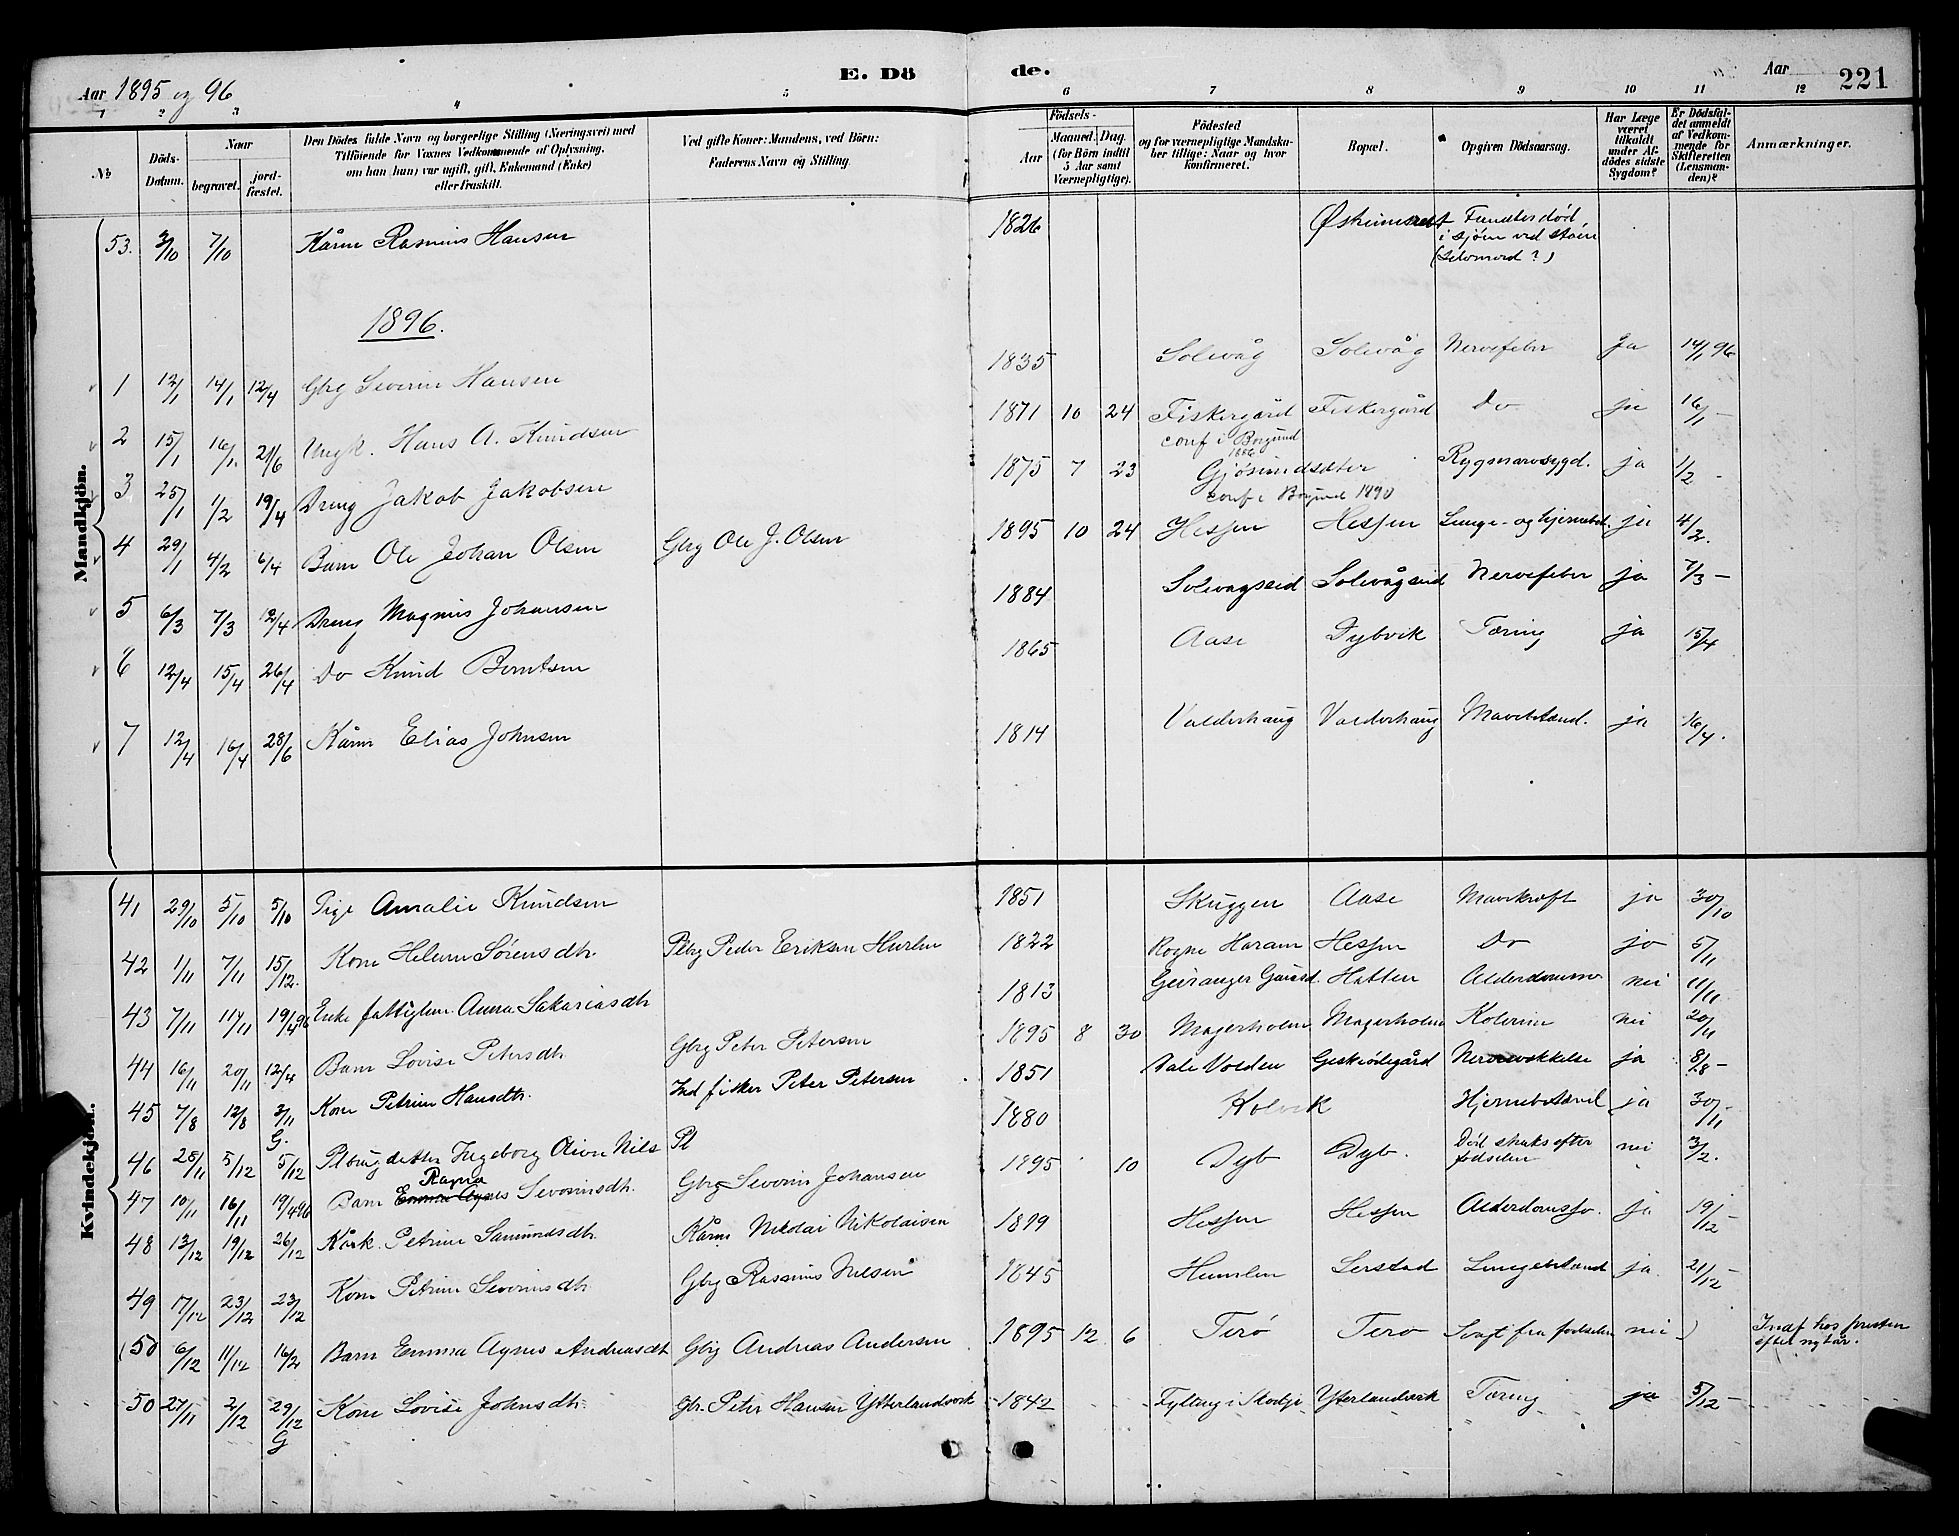 Aar 1895 og 96
E. Dö
de.
Aar
221
1 2 3 4 5 6 7 8 9 10 11 12
No
Döds-Datum.
Naar
begravet.
jordfæstet.
Den Dödes fulde Navn og borgerlige Stilling (Næringsvei) med Tilföiende for Voxnes Vedkommende af Oplysning, om han (hun) var ugift, gift, Enkemand (Enke) eller fraskilt.
Ved gifte Koner: Mandens, ved Börn: Faderens Navn og Stilling.
Födsels-
Aar
Maaned. Dag.
(for Börn indtil 5 Aar samt Værnepligtige).
Födested og for værnepligtige Mandskaber tillige: Naar og hvor konfirmeret.
Bopæl.
Opgiven Dödsaarsag.
Har Læge været tilkaldt under Afdödes sidste Sygdom?
Er Dödsfaldet anmeldt af Vedkommende for Skifteretten (Lensmanden)?
Anmærkninger.
Mandkjön.
53. 3/10 7/10 Kårm Rasmus Hansen 1826 Funden död i sjöen ved støen (Selvmord?)
1896.
1 12/1 14/1 12/4 Gbrg Severin Hansen 1835 Solevåg Solevåg Nervefeber Ja 14/1 96
2 15/1 16/1 21/6 Ungk. Hans A. Knudsen 1871 10 24 Fiskergård Fiskergård Do ja 16/1 –
conf i Borgund 1886
3 25/1 1/2 19/4 Dreng Jakob Jakobsen 1875 7 23 Gjøsundsæter Rygmarvsygd. ja 1/2
conf i Borgund 1890
4 29/1 4/2 6/4 Barn Ole Johan Olsen Gbrg Ole J. Olsen 1895 10 24 Hessen Hessen Lunge- og hjernebet. ja 4/2.
5 6/3 7/3 12/4 Dreng Magnus Johansen 1884 Solevågseid Solevågseid Nervefeber ja 7/3 –
6 12/4 15/4 26/4 Do Knud Berntsen 1865 Aase Dybvik Tæring ja 15/4
7 12/4 16/4 28/6 Kårm Elias Johnsen 1814 Valderhaug Valderhaug Mavebetænd. ja 16/4.
Kvindekjön.
41 29/10 5/10 5/10 Pige Amalie Knudsen 1851 Skuggen Aase Mavekræft ja 30/10
42 1/11 7/11 15/12. Kone Helene Sørensdtr. Plbrg Peder Eriksen Hurlen 1822 Rogne Haram Hessen Do ja 5/11
43 7/11 14/11 19/4 96 Enke fattiglem Anna Sakariasdtr 1813 Geiranger Hatlen Alderdomssv nei 11/11
44 16/11 20/11 12/4 Barn Lovise Petersdtr Gbrg Peter Petersen 1895 8 30 Magerholm Magerholm Kolerine nei 20/11
45 7/8 12/8 3/11 Kone Petrine Hansdtr. Ind fisker Peter Petersen 1851 Dale Volden Nervesvækkelse ja 8/8 –
G.
46 25/11 5/12 5/12 Plbrugdatter Ingeborg Oline Nils Pl 1880 Kolvik Hjernebetænd ja 30/11 –
47 10/11 16/11 19/4 96 Barn Ragna Emma Agnes Severinsdtr. Gbrg Severin Johansen 1895 10 Dyb Dyb. Död straks efter fødselen nei 3/2.
48 13/12 19/12 26/12 Kårk. Petrine Samundsdtr. Kårm Nikolai Nikolaisen 1819 Hessen Hessen Alderdomssv. ja 19/12 –
49 17/12 23/12 23/12 Kone Petrine Severinsdtr. Gbrg Rasmus Nilsen 1845 Humlen Serstad Lungebetænd ja. 21/12 –
(50 6/12 11/12 16/2 Barn Emma Agnes Andreasdtr Gbrg Andreas Andersen 1895 12 6 Terø Terø Svagt fra fødselen nei ) Indf hos presten efter nytår.
50 27/11 2/12 29/12 Kone Lovise Johnsdtr. Gbr. Peter Hansen Ytterlandsvik 1842 Fylling i Skodje Ytterlandsvik Tæring ja 5/12 –
G